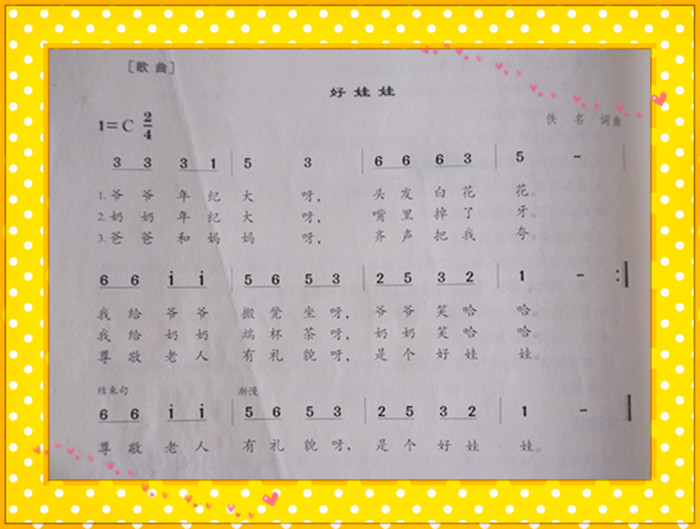 [歌曲]
好娃娃
1=C 2/4
佚名 词曲
3 3 3 1 | 5 3 | 6 6 6 3 | 5 - |
1. 爷爷年纪大呀，头发白花花。
2. 奶奶年纪大呀，嘴里掉了牙。
3. 爸爸和妈妈呀，齐声把我夸。
6 6 i i | 5 6 5 3 | 2 5 3 2 | 1 - :|
我给爷爷搬凳坐呀，爷爷笑哈哈。
我给奶奶端杯茶呀，奶奶笑哈哈。
尊敬老人有礼貌呀，是个好娃娃。
结束句 渐慢
6 6 i i | 5 6 5 3 | 2 5 3 2 | 1 - |
尊敬老人有礼貌呀，是个好娃娃。